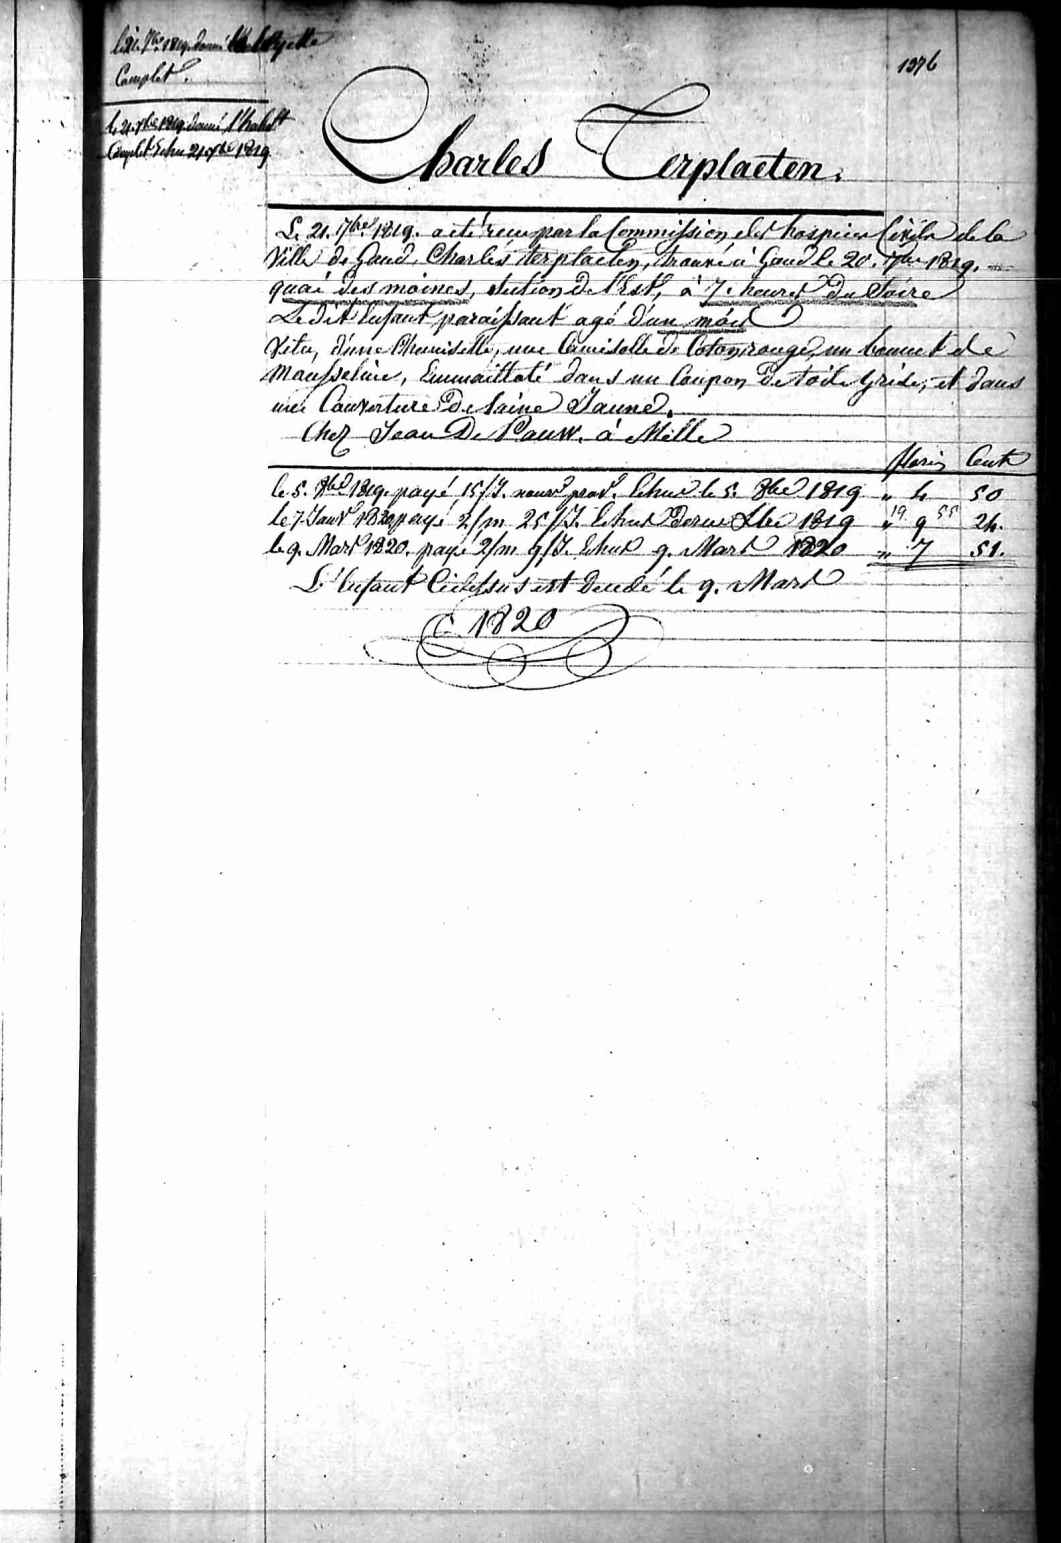 le 21. 7bre 1819. donné la layette
Complet.
le 21. 7bre 1819 donné l'habitt
Complet Echu 21 7bre 1819
1376
Charles Terplaeten.
Le 21. 7bre 1819. a été recu par la Commission des hospices Civils de la
Ville de Gand, Charles Terplaeten, trouvé à Gand le 20. 7bre 1819.
quai des moines, section de l'Est, à 7. heures du Soire
Le dit Enfant paraissant agé d'un mois
Vetu, d'une Chemisette, une Camisolle de Coton rouge, un bonnet de
Mousseline, Emmailloté dans un Coupon de toile Grise, et dans
une Couverture de laine Jaune.
Chez Jean De Pauw. à Melle
florins Cents
le 5. 8bre 1819. payé 15/J. nourre prove. Echus le 5. 8bre 1819 " 4 50
le 7. Janvr 1820, payé 2/m 25/J. Echus Xbre 1819 " 19 55 9 24.
le 9. Mars 1820. payé 2/m 9/J. Echus 9. Mars 1820 " 7 51.
L'Enfant Cidessus est Decedé le 9. Mars
1820